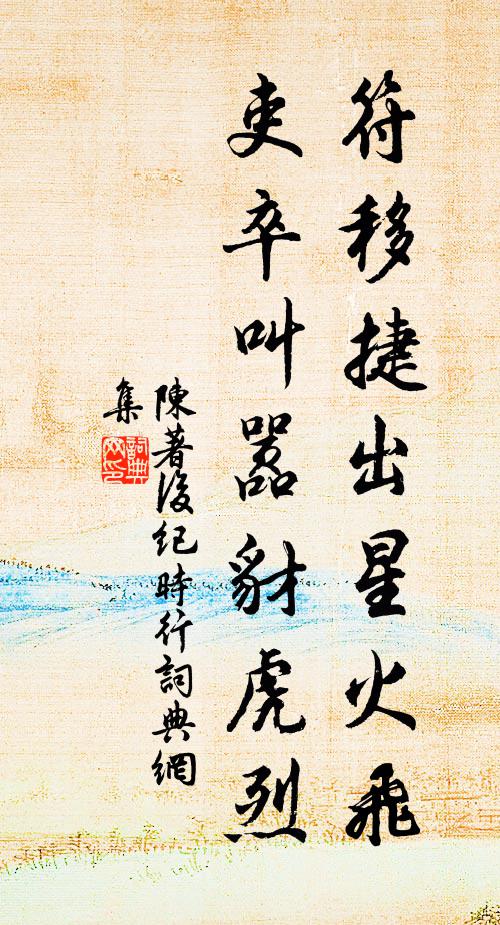 符移捷出星火飛
吏卒叫嚣豺虎烈
陳著後纪時行詞典網
集
詞典
网印